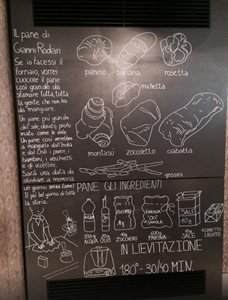 Il pane di
Gianni Rodari
Se io facessi il
fornaio, vorrei
cuocere il pane
così grande da
sfamare tutta, tutta
la gente che non ha
da mangiare.
Un pane più grande
del sole, dorato, profu
mato come le viole
Un pane così verrebbe
a mangiarlo dall'India
e dal Chilì i poveri, i
bambini, i vecchietti
e gli uccellini.
Sarà una data da
studiare a memoria:
un giorno senza fame!
Il più bel giorno di tutta
la storia.
panino
banana
rosetta
michetta
montasù
zoccoletto
ciabatta
grissini
PANE GLI INGREDIENTI
ACQUA
OLIO
ZUCCHERO
FARINA
SALE
LIEVITO
IN LIEVITAZIONE
180° - 30/40 MIN.